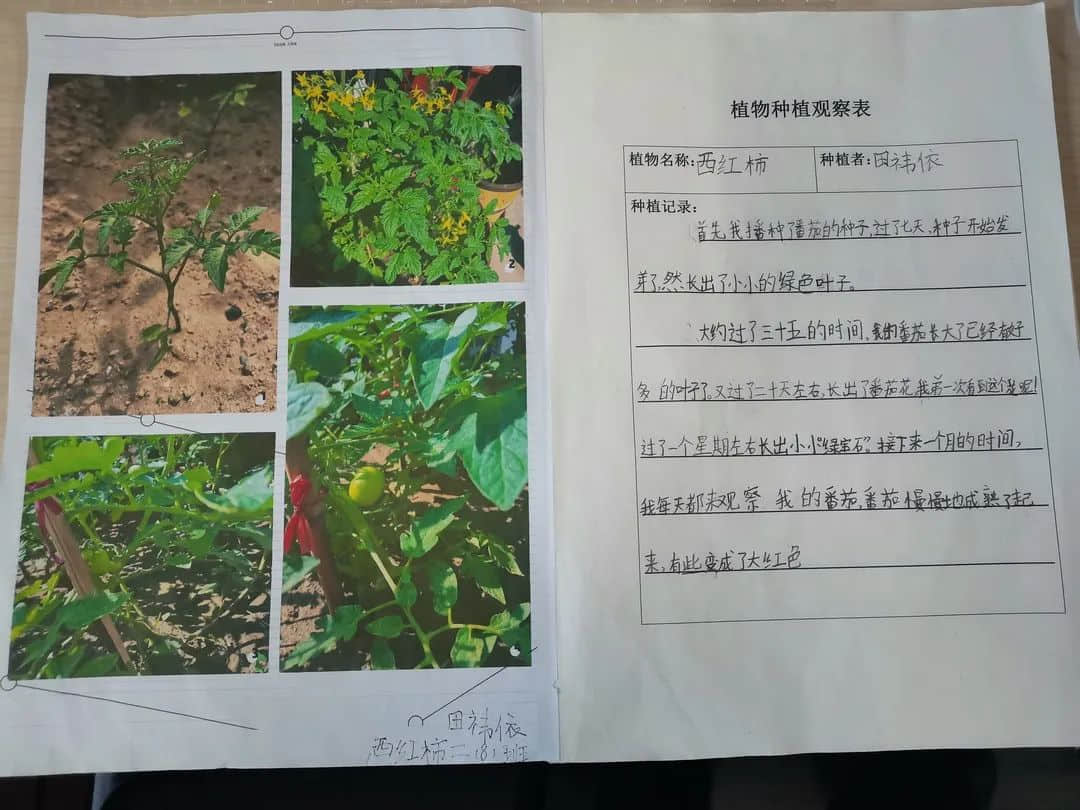 2
田祎依
西红柿二（8）班
植物种植观察表
植物名称：西红柿
种植者：田祎依
种植记录：
首先我播种了番茄的种子，过了七天，种子开始发
芽了，然长出了小小的绿色叶子。
大约过了三十五的时间，我的番茄长大了已经有好
多的叶子了。又过了二十天左右，长出了番茄花，我第一次看到这个花呢！
过了一个星期左右长出小小“绿宝石”。接下来一个月的时间，
我每天都来观察我的番茄，番茄慢慢地成熟了起
来，有些变成了大红色